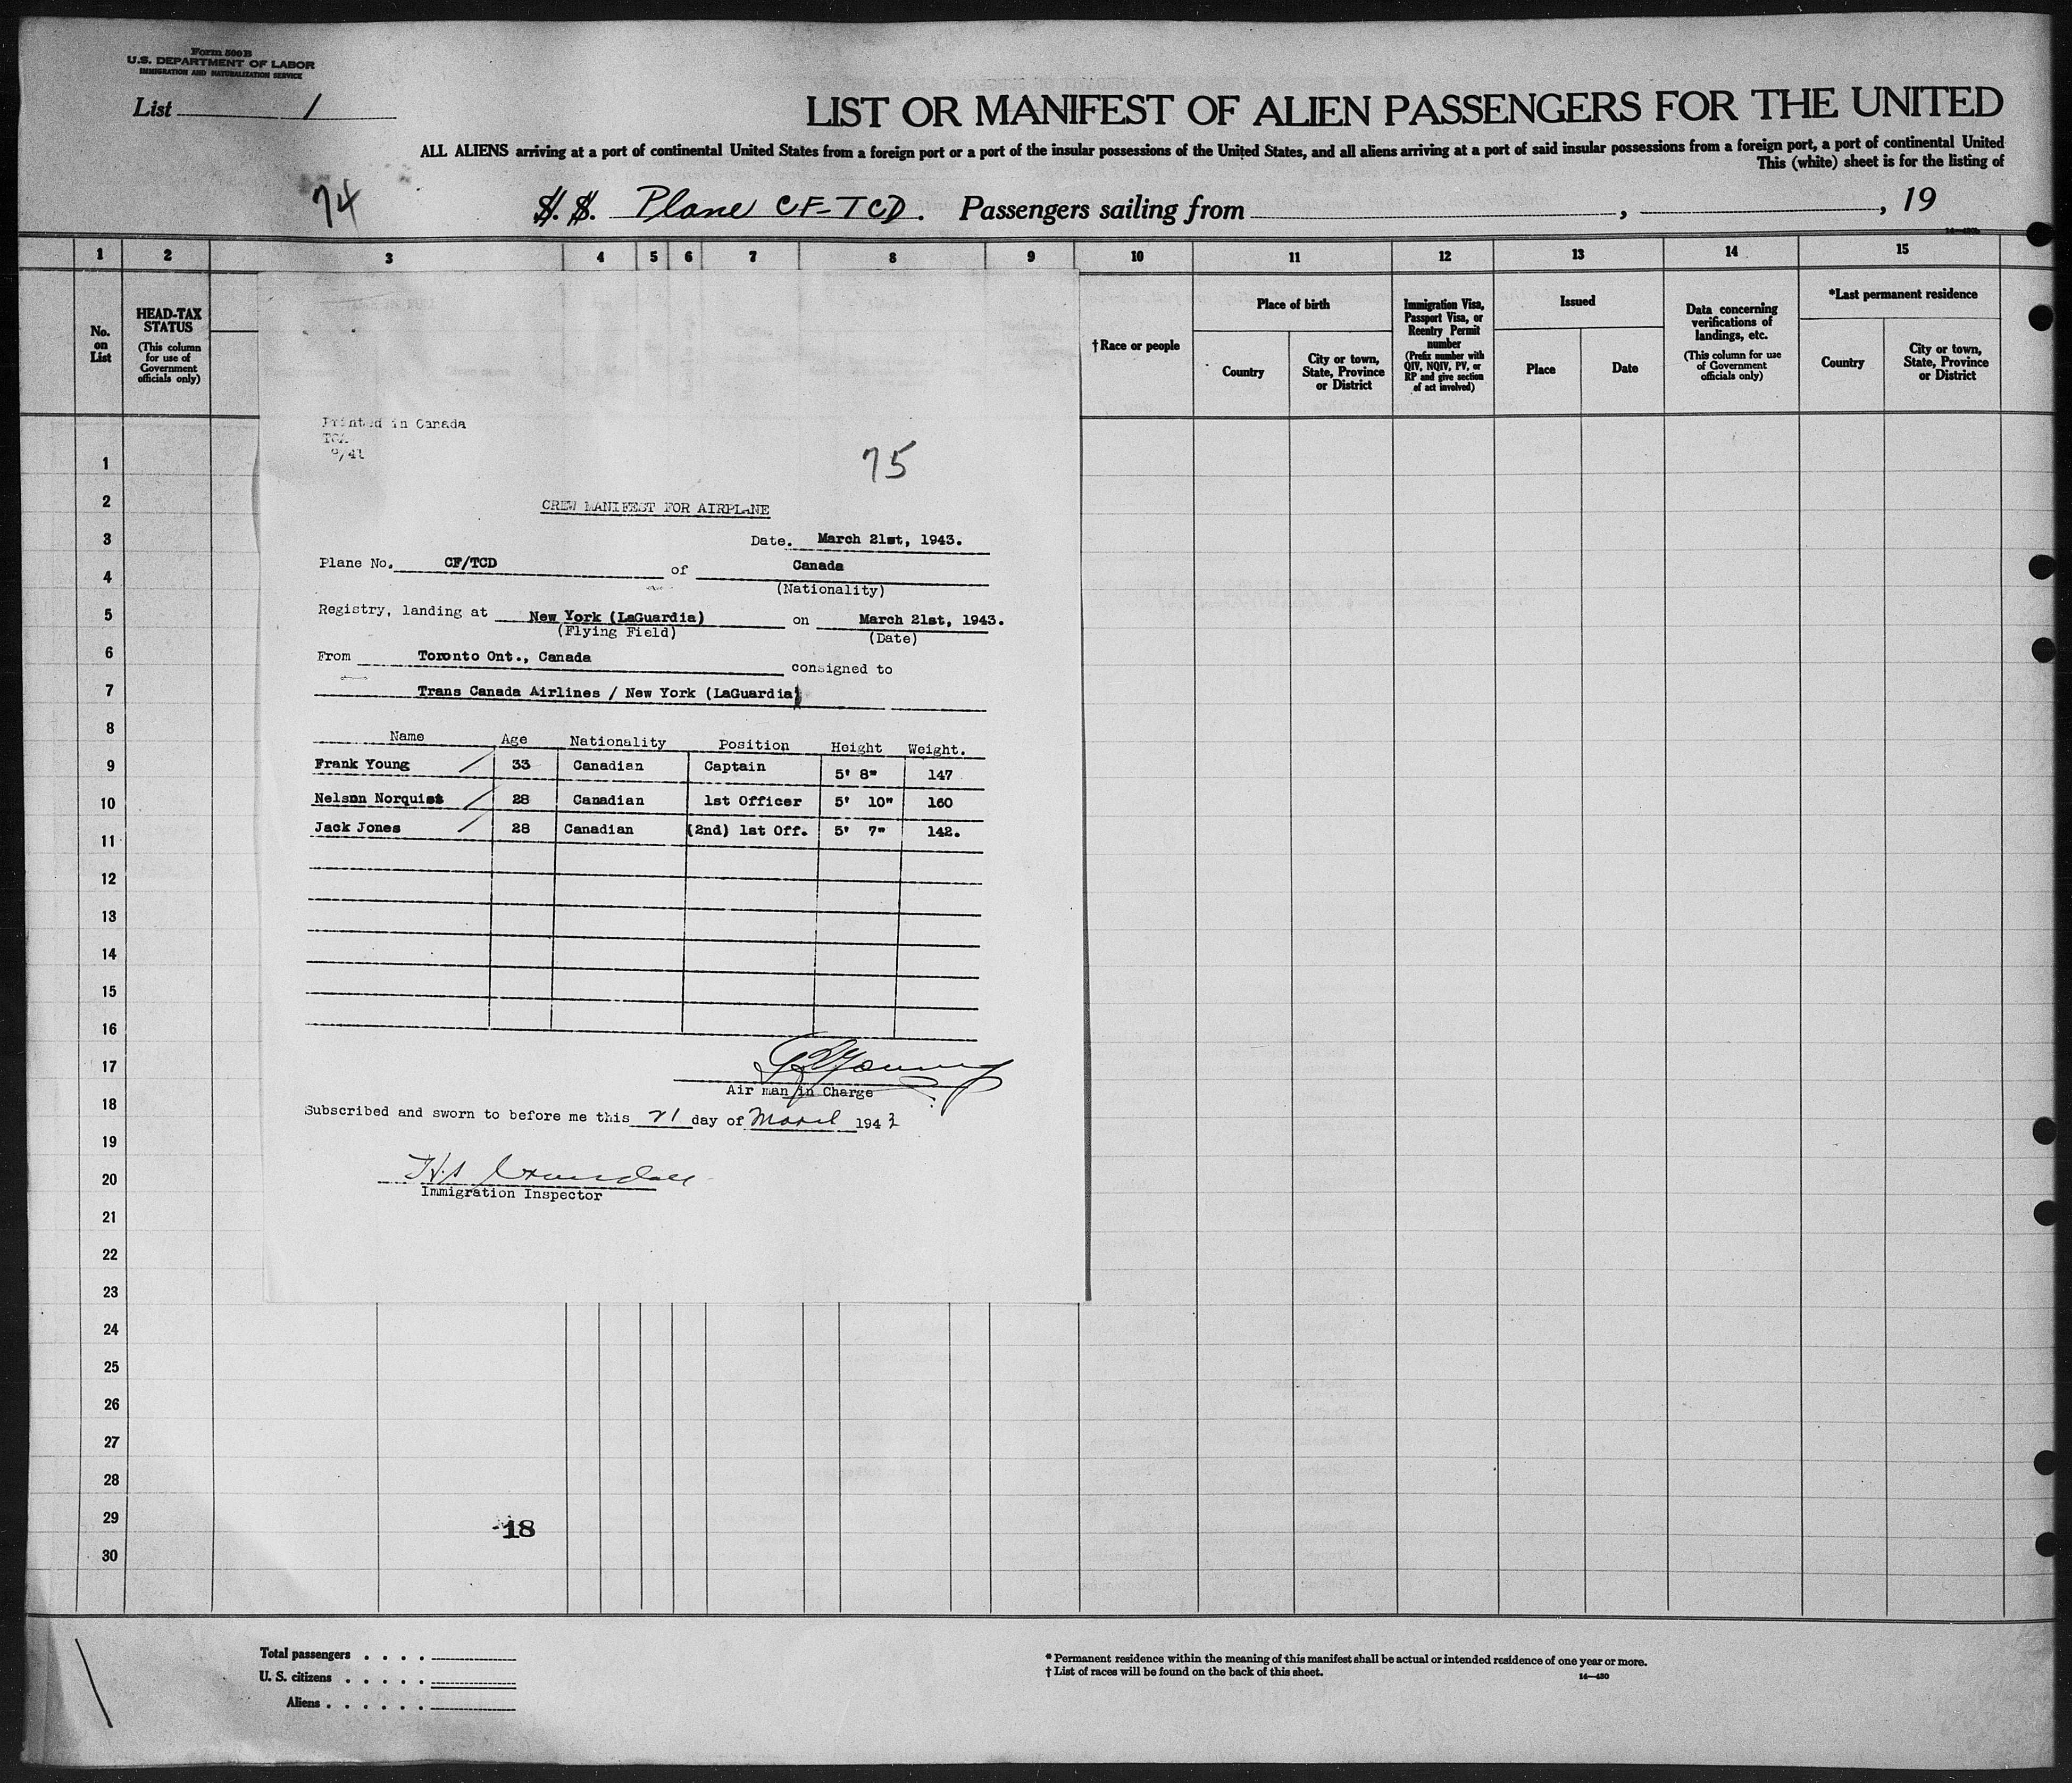 Form 500 B
U.S. DEPARTMENT OF LABOR
IMMIGRATION AND NATURALIZATION SERVICE
List 1
LIST OR MANIFEST OF ALIEN PASSENGERS FOR THE UNITED
ALL ALIENS arriving at a port of continental United States from a foreign port or a port of the insular possessions of the United States, and all aliens arriving at a port of said insular possessions from a foreign port, a port of continental United
This (white) sheet is for the listing of
74
S. S. Plane CF-TCD. Passengers sailing from , , 19
1 2 3 4 5 6 7 8 9 10 11 12 13 14 15
No. on List
HEAD-TAX STATUS
(This column for use of Government officials only)
†Race or people
Place of birth
Country
City or town, State, Province or District
Immigration Visa, Passport Visa, or Reentry Permit number
(Prefix number with QIV, NQIV, PV, or RP and give section of act involved)
Issued
Place
Date
Data concerning verifications of landings, etc.
(This column for use of Government officials only)
*Last permanent residence
Country
City or town, State, Province or District
Printed in Canada
TCA
/41
75
CREW MANIFEST FOR AIRPLANE
Date. March 21st, 1943.
Plane No. CF/TCD of Canada
(Nationality)
Registry, landing at New York (LaGuardia) on March 21st, 1943.
(Flying Field) (Date)
From Toronto Ont., Canada consigned to
Trans Canada Airlines / New York (LaGuardia)
Name Age Nationality Position Height Weight.
Frank Young 33 Canadian Captain 5' 8" 147
Nelson Norquist 28 Canadian 1st Officer 5' 10" 160
Jack Jones 28 Canadian (2nd) 1st Off. 5' 7" 142.
Air man in Charge
Subscribed and sworn to before me this 21 day of March 1943
Immigration Inspector
1
2
3
4
5
6
7
8
9
10
11
12
13
14
15
16
17
18
19
20
21
22
23
24
25
26
27
28
29
30
18
Total passengers . . . .
U. S. citizens . . . . .
Aliens . . . . . .
* Permanent residence within the meaning of this manifest shall be actual or intended residence of one year or more.
† List of races will be found on the back of this sheet.
14—430